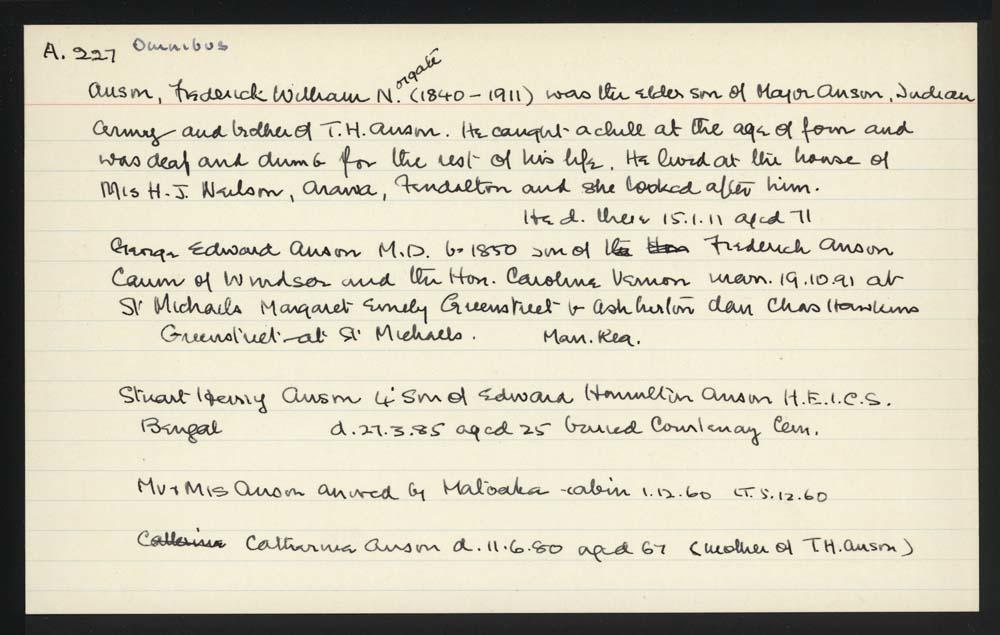 A. 227 Omnibus
Anson, Frederick William N.orgate (1840 - 1911) was the elder son of Major Anson, Indian
Army and brother of T.H. Anson. He caught a chill at the age of four and
was deaf and dumb for the rest of his life. He lived at the house of
Mrs H. J. Neilson, Arawa, Fendalton and she looked after him.
He d. there 15.1.11 aged 71
George Edward Anson M.D. b 1850 son of the Frederick Anson
Canon of Windsor and the Hon. Caroline Vernon marr. 19.10.91 at
St Michaels Margaret Emely Greenstreet b Ashburton dau Chas Hawkins
Greenstreet at St Michaels. Marr. Reg.
Stuart Henry Anson 4' son of Edward Hamilton Anson H.E.I.C.S.
Bengal d. 27.3.85 aged 25 buried Courtenay Cem.
Mr & Mrs Anson arrived by Matoaka - cabin 1.12.60 LT. 5.12.60
Catharina Anson d. 11.6.80 aged 67 (mother of T.H. Anson)